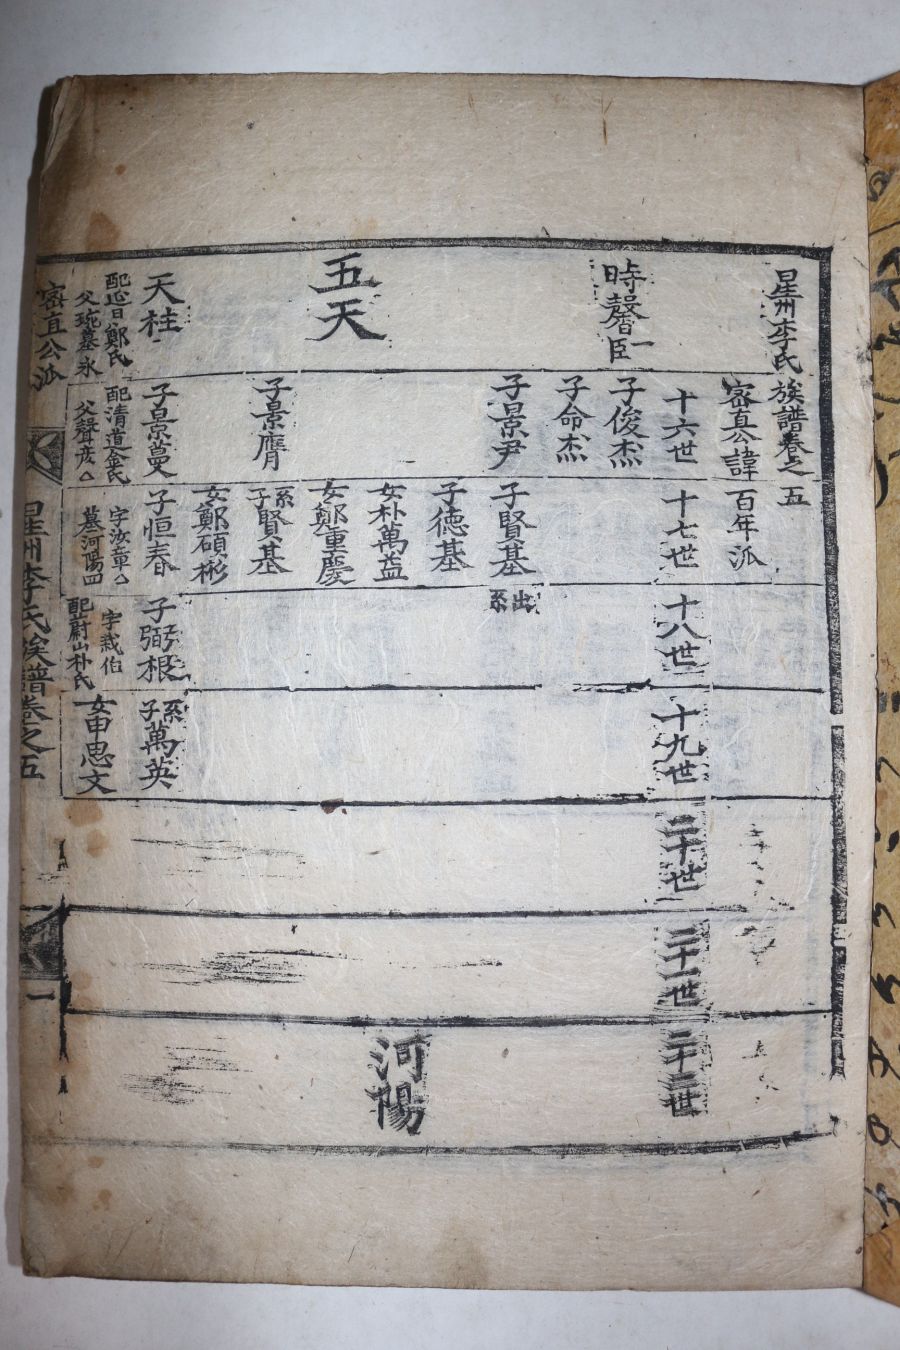 星州李氏族譜卷之五
密直公諱百年派
十六世
十七世
十八世
十九世
二十世
二十一世
二十二世
時馨
臣一
子俊杰
子命杰
子景尹
子賢基
出系
子德基
女朴萬益
女鄭重慶
五天
子景膺
系子賢基
女鄭碩彬
河陽
天柱
配迎日鄭氏
父琬墓永
子景蔓
配清道金氏
父聲彦
子恒春
字汝章
墓河陽四
子弼根
字栽伯
配蔚山朴氏
系子萬英
女申思文
密直公派
星州李氏族譜卷之五
一